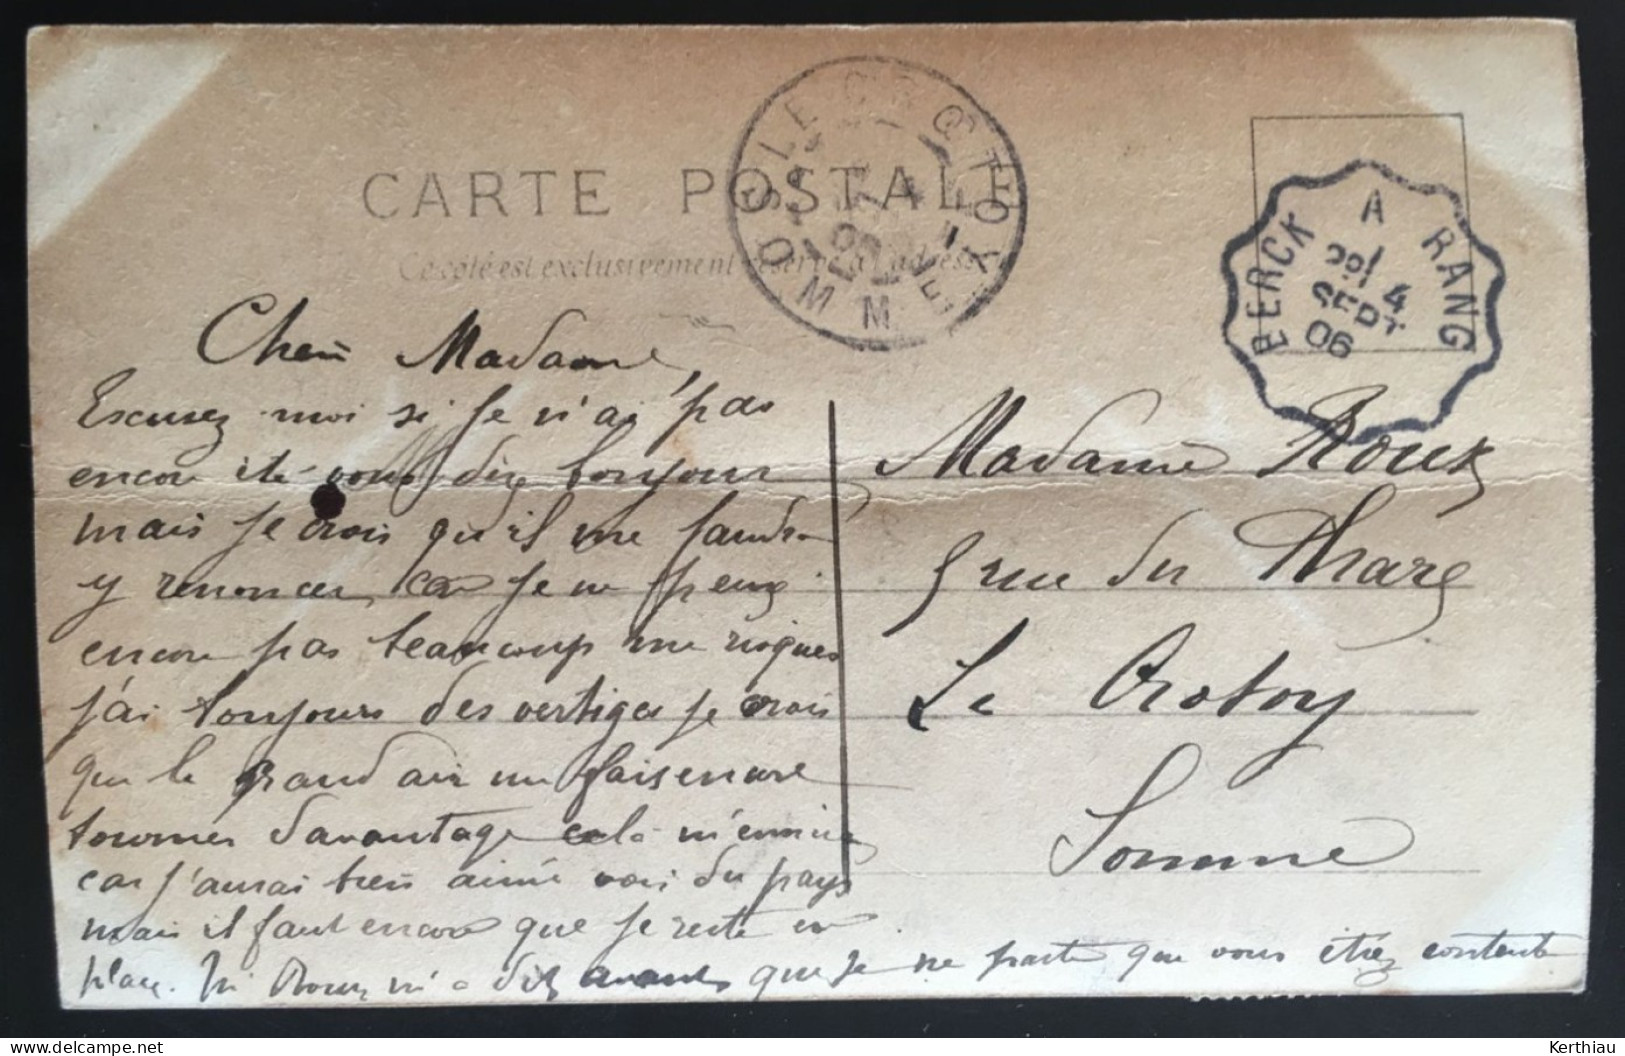 CARTE POSTALE
Ce côté est exclusivement réservé à l'adresse
LE CROTOY
SOMME
BERCK A RANG
4
SEPT
06
Cher Madame,
Excusez moi si je n'ai pas
encore été vous dire bonjour
mais je crois qu'il me faudra
y renoncer, car je ne peux
encore pas beaucoup me risquer
j'ai toujours des vertiges je crois
que le grand air me fais encore
tourner davantage cela m'ennuie
car j'aurai bien aimé voir du pays
mais il faut encore que je reste en
place. Mr Roux m'a dit avant que je ne parte que vous étiez contente
Madame Roux
5 rue du Phare
Le Crotoy
Somme
Kerthiau